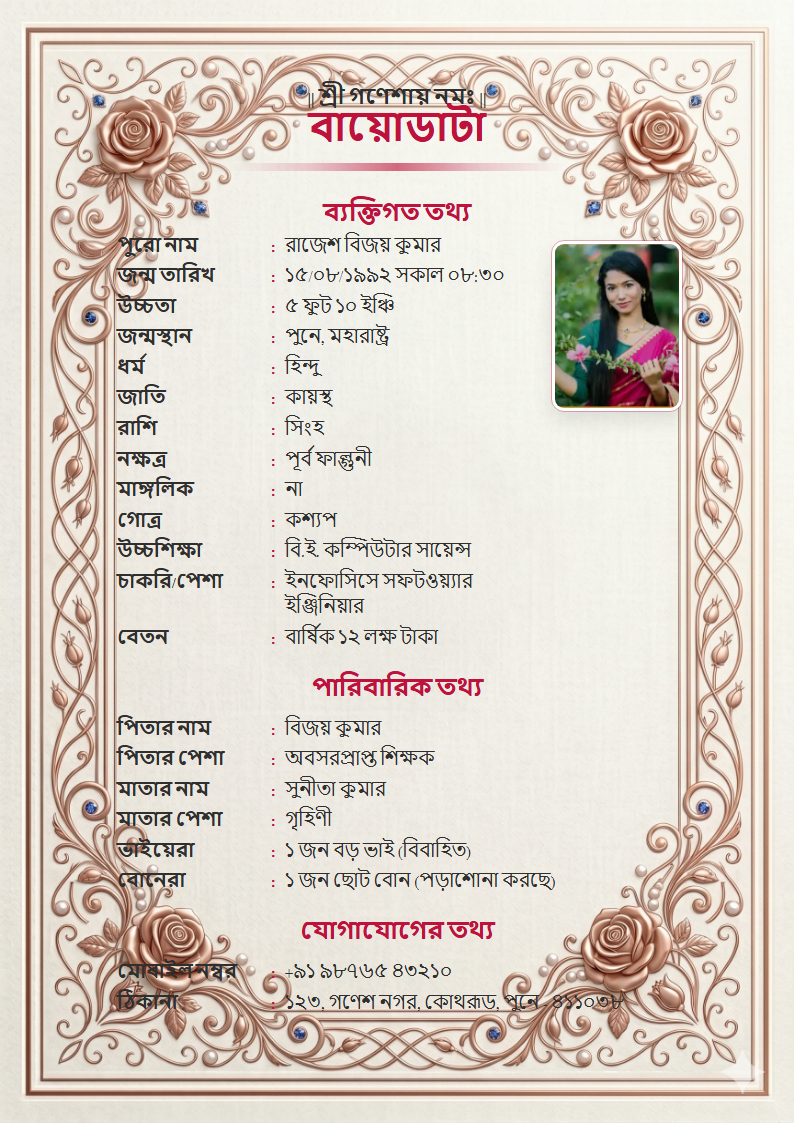 ॥ শ্রী গণেশায় নমঃ ॥
বায়োডাটা
ব্যক্তিগত তথ্য
পুরো নাম : রাজেশ বিজয় কুমার
জন্ম তারিখ : ১৫/০৮/১৯৯২ সকাল ০৮:৩০
উচ্চতা : ৫ ফুট ১০ ইঞ্চি
জন্মস্থান : পুনে, মহারাষ্ট্র
ধর্ম : হিন্দু
জাতি : কায়স্থ
রাশি : সিংহ
নক্ষত্র : পূর্ব ফাল্গুনী
মাঙ্গলিক : না
গোত্র : কশ্যপ
উচ্চশিক্ষা : বি.ই. কম্পিউটার সায়েন্স
চাকরি/পেশা : ইনফোসিসে সফটওয়্যার
ইঞ্জিনিয়ার
বেতন : বার্ষিক ১২ লক্ষ টাকা
পারিবারিক তথ্য
পিতার নাম : বিজয় কুমার
পিতার পেশা : অবসরপ্রাপ্ত শিক্ষক
মাতার নাম : সুনীতা কুমার
মাতার পেশা : গৃহিণী
ভাইয়েরা : ১ জন বড় ভাই (বিবাহিত)
বোনেরা : ১ জন ছোট বোন (পড়াশোনা করছে)
যোগাযোগের তথ্য
মোবাইল নম্বর : +৯১ ৯৮৭৬৫ ৪৩২১০
ঠিকানা : ১২৩, গণেশ নগর, কোথরুড, পুনে - ৪১১০৩৮